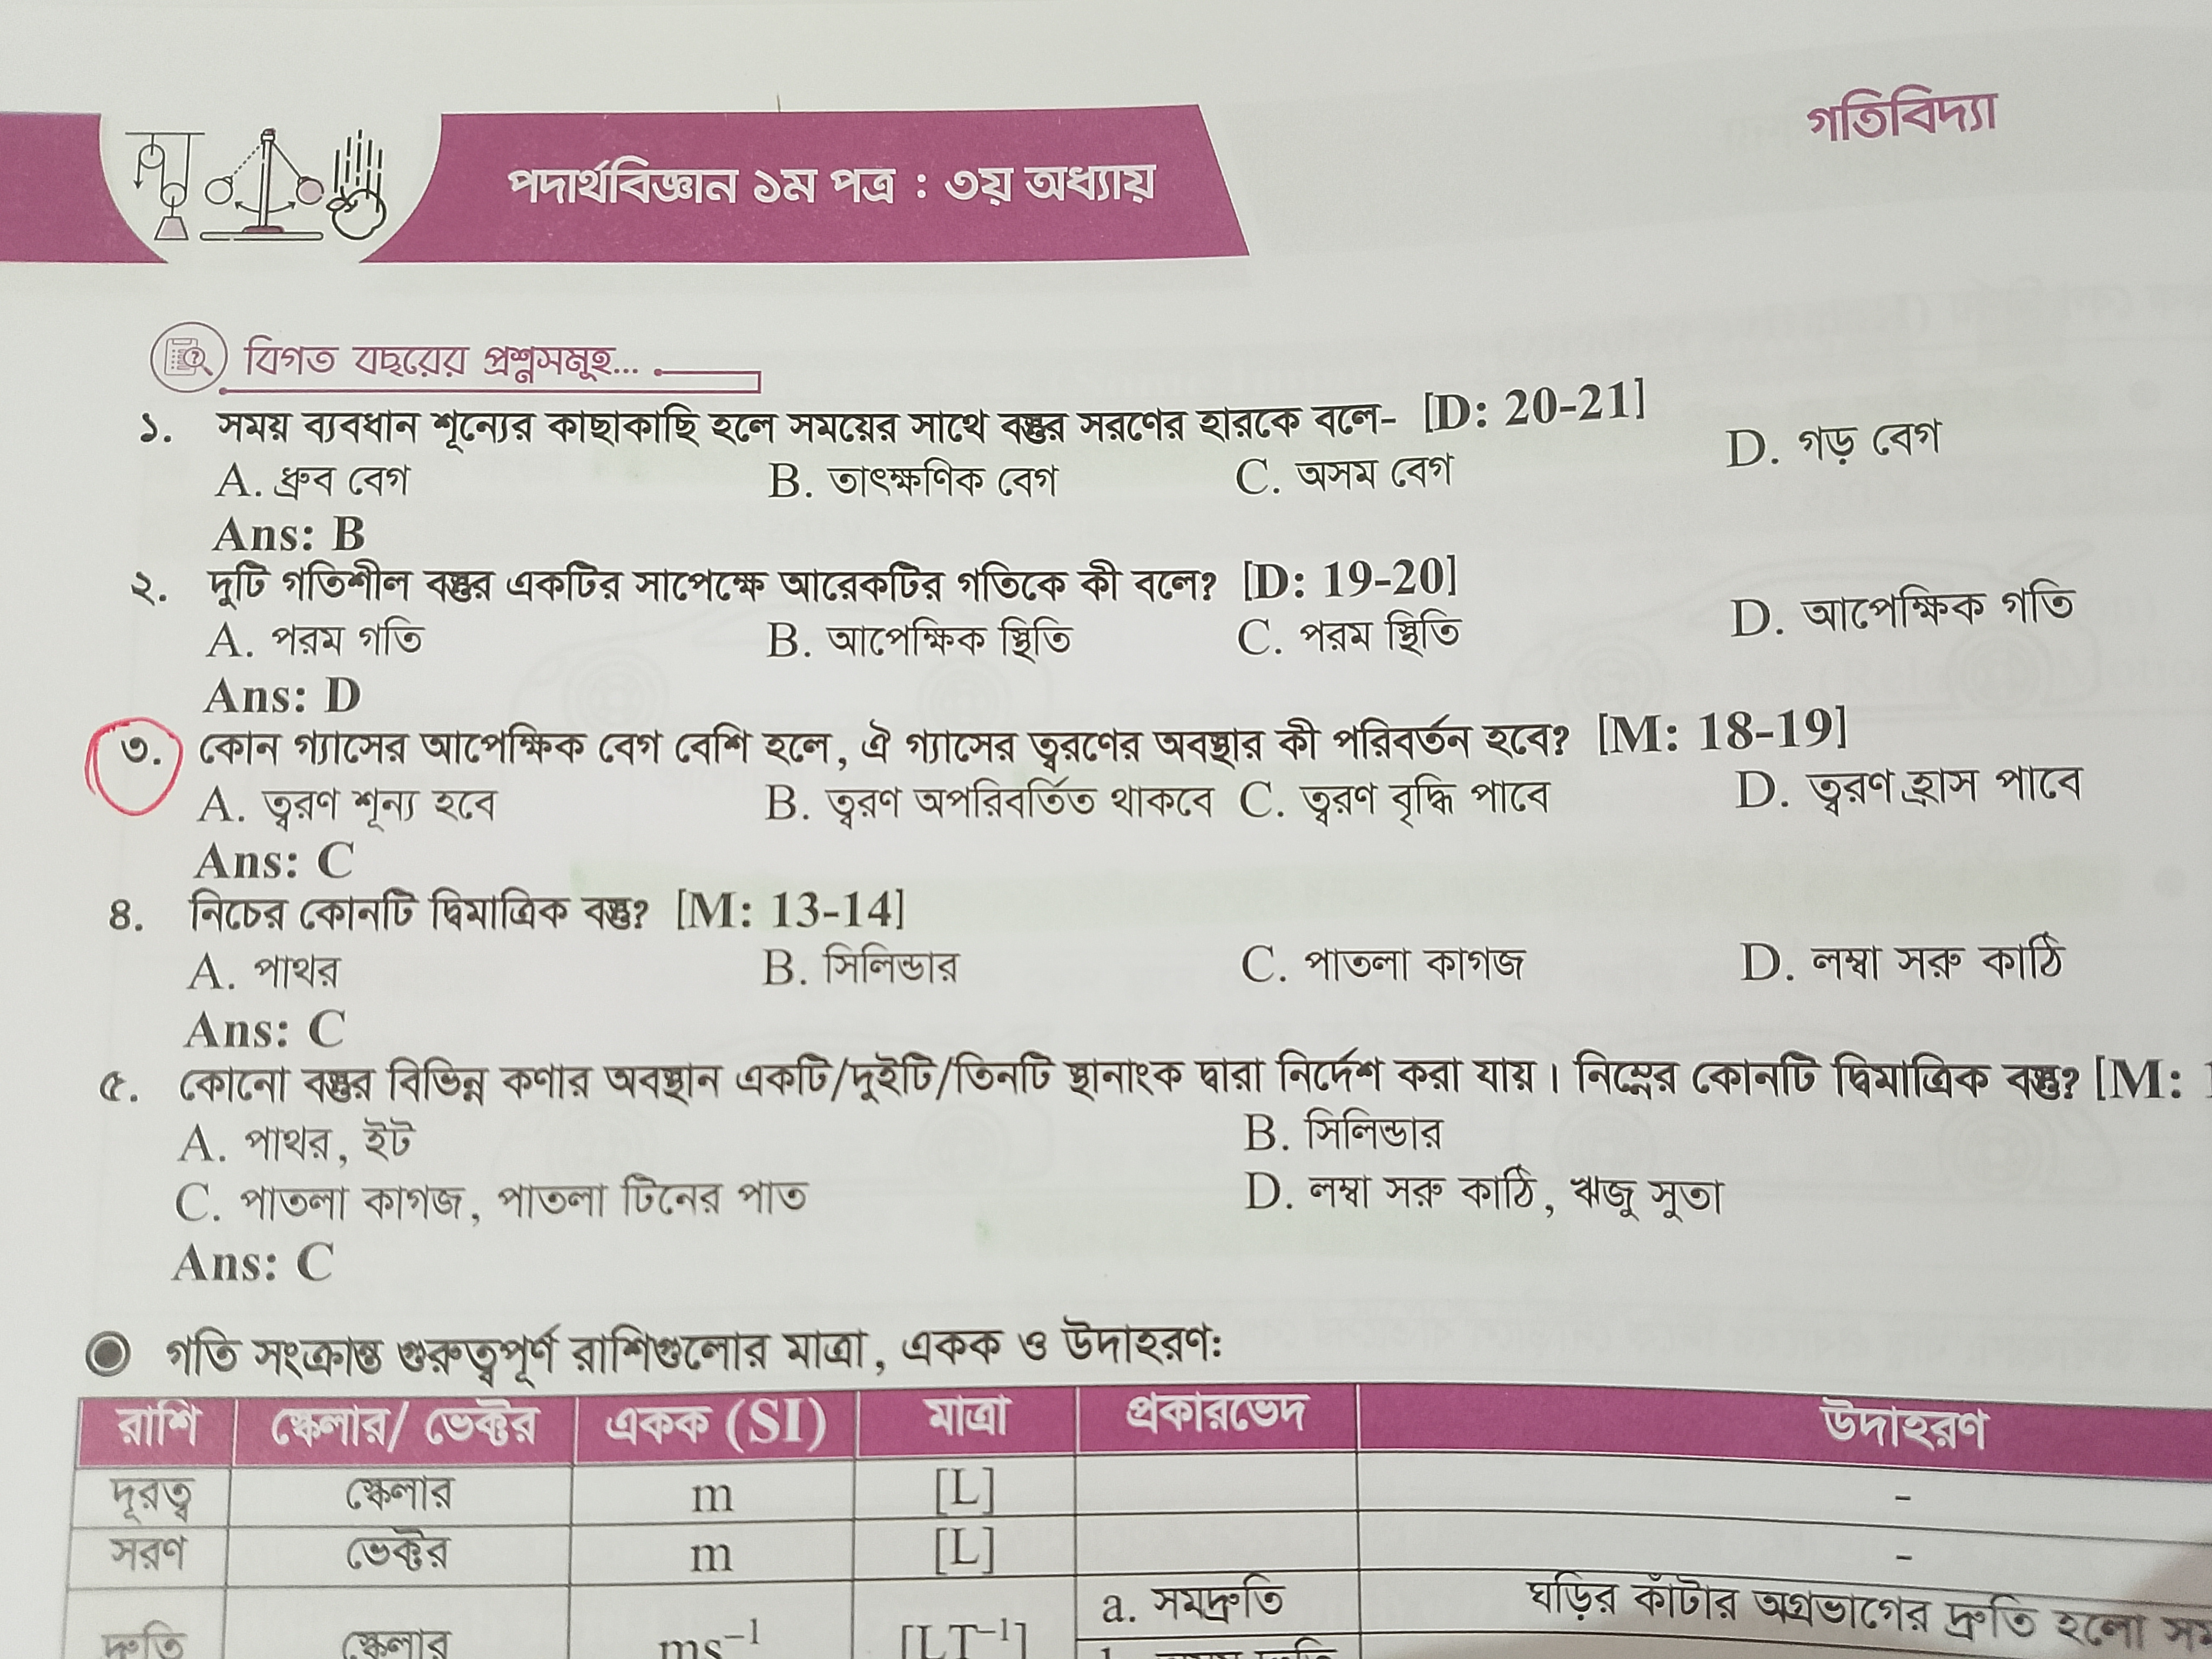 গতিবিদ্যা
পদার্থবিজ্ঞান ১ম পত্র : ৩য় অধ্যায়
বিগত বছরের প্রশ্নসমূহ...
১. সময় ব্যবধান শূন্যের কাছাকাছি হলে সময়ের সাথে বস্তুর সরণের হারকে বলে- [D: 20-21]
A. ধ্রুব বেগ B. তাৎক্ষণিক বেগ C. অসম বেগ D. গড় বেগ
Ans: B
২. দুটি গতিশীল বস্তুর একটির সাপেক্ষে আরেকটির গতিকে কী বলে? [D: 19-20]
A. পরম গতি B. আপেক্ষিক স্থিতি C. পরম স্থিতি D. আপেক্ষিক গতি
Ans: D
৩. কোন গ্যাসের আপেক্ষিক বেগ বেশি হলে, ঐ গ্যাসের ত্বরণের অবস্থার কী পরিবর্তন হবে? [M: 18-19]
A. ত্বরণ শূন্য হবে B. ত্বরণ অপরিবর্তিত থাকবে C. ত্বরণ বৃদ্ধি পাবে D. ত্বরণ হ্রাস পাবে
Ans: C
৪. নিচের কোনটি দ্বিমাত্রিক বস্তু? [M: 13-14]
A. পাথর B. সিলিন্ডার C. পাতলা কাগজ D. লম্বা সরু কাঠি
Ans: C
৫. কোনো বস্তুর বিভিন্ন কণার অবস্থান একটি/দুইটি/তিনটি স্থানাংক দ্বারা নির্দেশ করা যায়। নিম্নের কোনটি দ্বিমাত্রিক বস্তু? [M:
A. পাথর, ইট B. সিলিন্ডার
C. পাতলা কাগজ, পাতলা টিনের পাত D. লম্বা সরু কাঠি, ঋজু সুতা
Ans: C
গতি সংক্রান্ত গুরুত্বপূর্ণ রাশিগুলোর মাত্রা, একক ও উদাহরণ:
রাশি স্কেলার/ ভেক্টর একক (SI) মাত্রা প্রকারভেদ উদাহরণ
দূরত্ব স্কেলার m [L] -
সরণ ভেক্টর m [L] -
দ্রুতি স্কেলার ms⁻¹ [LT⁻¹] a. সমদ্রুতি ঘড়ির কাঁটার অগ্রভাগের দ্রুতি হলো